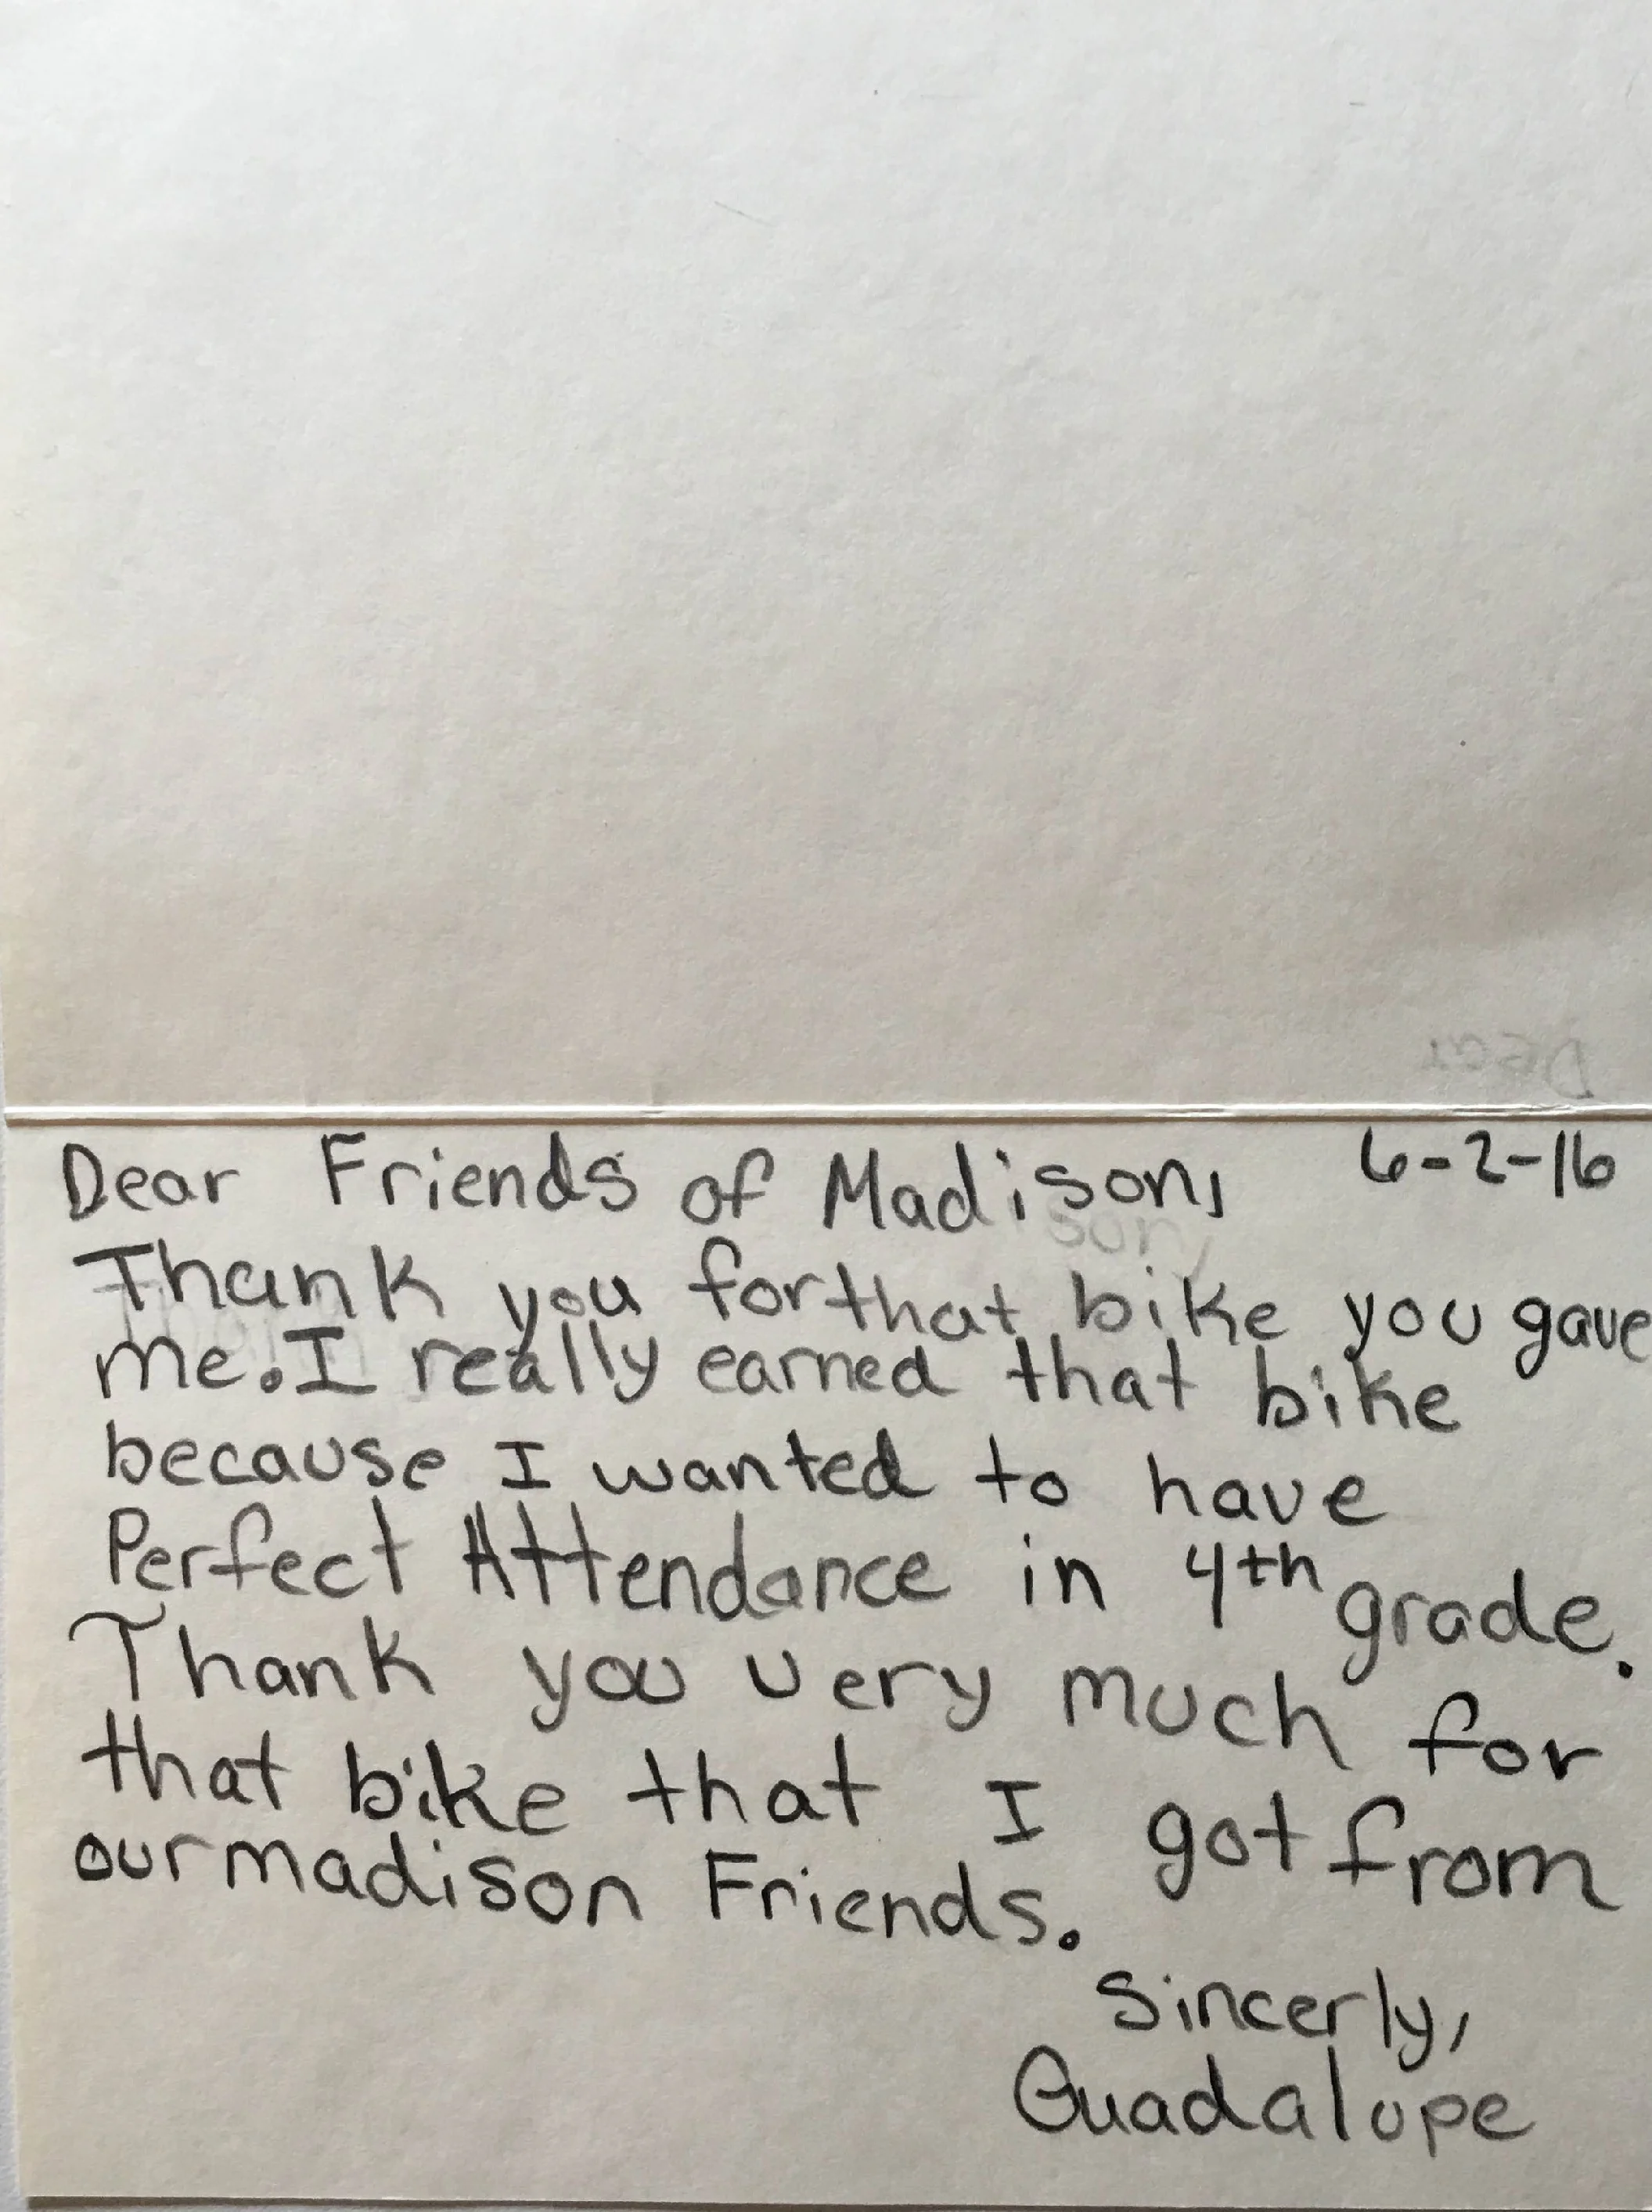 Dear Friends of Madison, 6-2-16
Thank you for that bike you gave
me. I really earned that bike
because I wanted to have
Perfect Attendance in 4th grade.
Thank you very much for
that bike that I got from
our madison Friends.
Sincerly,
Guadalupe